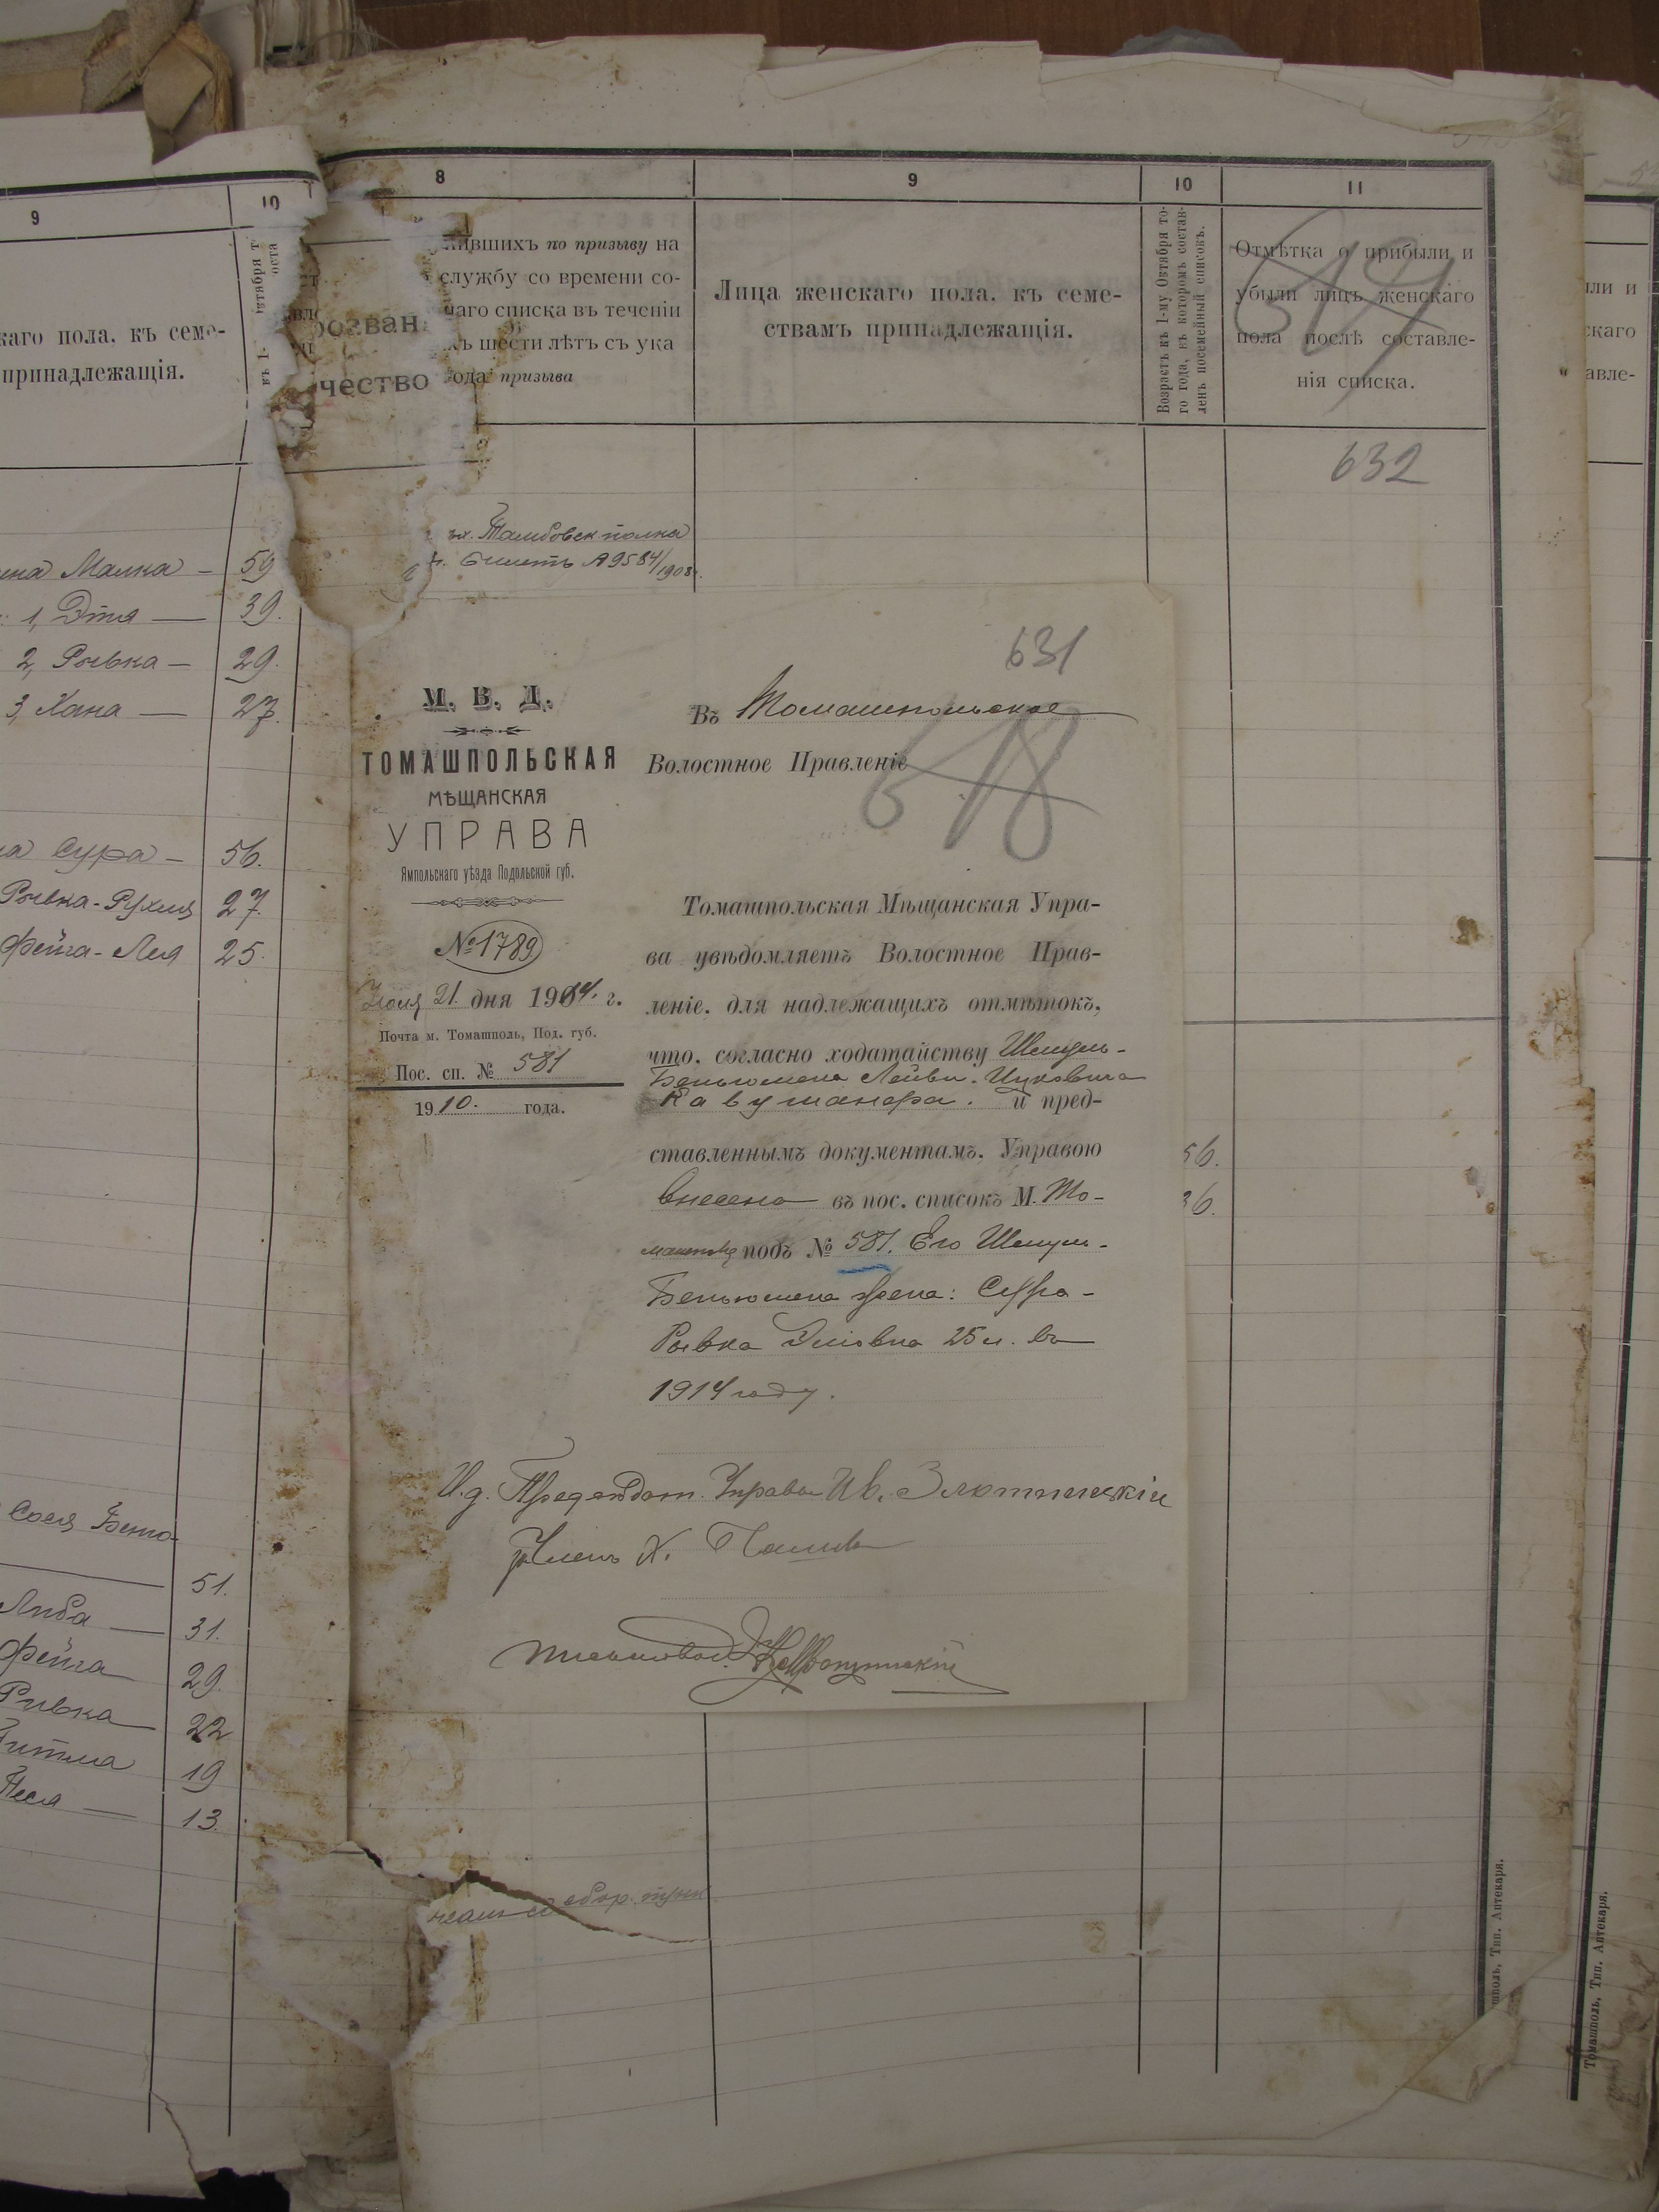 9
10
каго пола, къ семе-
принадлежащія.
Малка — 59
1, Этя — 39.
2, Рывка — 29.
3, Хана — 27.
Сура — 56.
Рывка-Рухля 27.
Фейга-Лея 25.
51.
Либа — 31.
Фейга 29.
Ривка 22
19
Неся — 13.
8
9
10
11
ившихъ по призыву на
службу со времени со-
наго списка въ теченіи
хъ шести лѣтъ съ ука
года призыва
чество
Лица женскаго пола, къ семе-
ствамъ принадлежащія.
Возрастъ къ 1-му Октября то-
го года, въ которомъ состав-
ленъ посемейный списокъ.
Отмѣтка о прибыли и
убыли лицъ женскаго
пола послѣ составле-
нія списка.
632
Тамбовск полка
билетъ № 9584/1908 г.
631
М. В. Д.
ТОМАШПОЛЬСКАЯ
МѢЩАНСКАЯ
УПРАВА
Ямпольскаго уѣзда Подольской губ.
№ 1789
21 дня 1914 г.
Почта м. Томашполь, Под. губ.
Пос. сп. № 581
1910. года.
Въ Томашпольское
Волостное Правленіе
618
Томашпольская Мѣщанская Упра-
ва увѣдомляетъ Волостное Прав-
леніе, для надлежащихъ отмѣтокъ,
что, согласно ходатайству Шмуль-
Беньюмена Лейви-Ицковича
Кавушанера. и пред-
ставленнымъ документамъ, Управою
внесена въ пос. списокъ М. То-
машполя подъ № 581. Его Шмуль-
Беньюмена жена: Сура-
Рывка 25 л. въ
1914 году.
И.д. Предсѣдат. Управы Ив. Злотницкій
Членъ Х.
Письмовод.
56.
36.
сбор. пунк
Томашполь, Тип. Аптекаря.
шполь, Тип. Аптекаря.